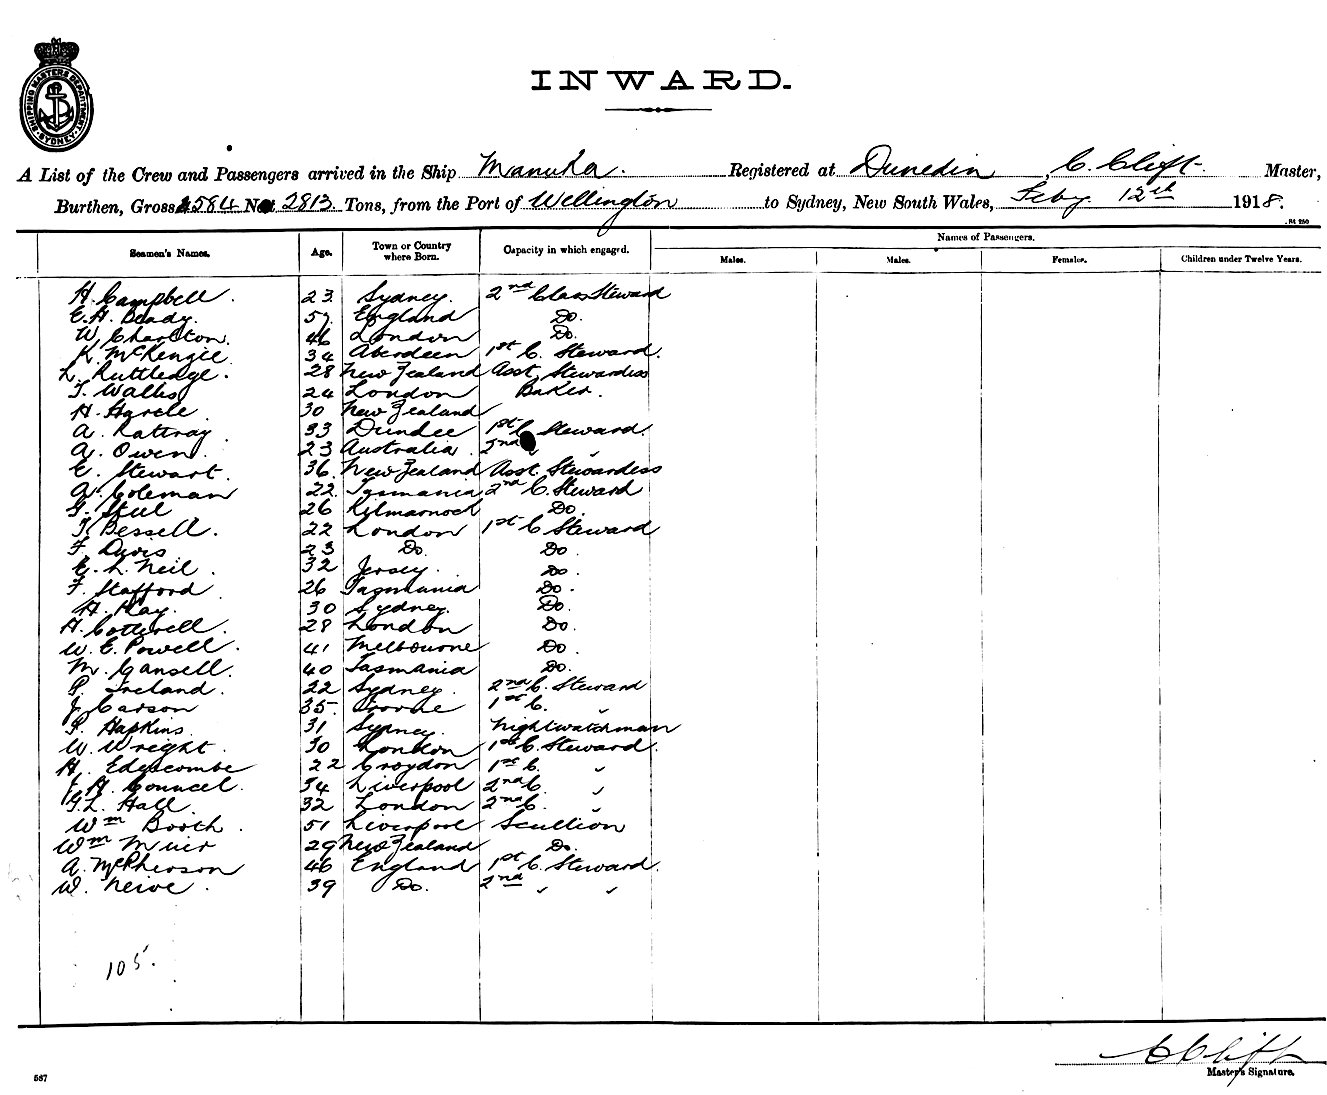 INWARD.
SHIPPING MASTERS DEPARTMENT SYDNEY
A List of the Crew and Passengers arrived in the Ship Manuka. Registered at Dunedin, C. Cliff Master,
Burthen, Gross 4584 Net 2813 Tons, from the Port of Wellington to Sydney, New South Wales, Feby 12th 1918.
St 250
Seamen's Names. Age. Town or Country where Born. Capacity in which engaged. Names of Passengers.
Males. Males. Females. Children under Twelve Years.
H. Campbell. 23 Sydney. 2nd Class Steward
E. H. Beady. England Do.
W. Charlton. 46 London Do.
K. McKenzie 34 Aberdeen 1st C. Steward.
L. Ruttledge. 28 New Zealand Asst. Stewardess
T. Wallis 24 London Baker.
H. Hartle 30 New Zealand
A. Rattray 33 Dundee 1st C Steward.
A. Owen. 23 Australia. 2nd " "
E. Stewart. 36. New Zealand Asst. Stewardess
A. Coleman 22. Tasmania 2nd C. Steward
G. Steel 26 Kilmarnock Do.
T. Bessell. 22 London 1st C Steward
F. Davis 23 Do. Do
E. L. Neil. 32 Jersey. Do
F. Stafford 26 Tasmania Do.
H. Kay. 30 Sydney. Do.
H. Cotterell. 28 London Do.
W. E. Powell. 41 Melbourne Do.
M. Gansell. 40 Tasmania Do.
P. Ireland. 22 Sydney. 2nd C. Steward
J. Carson 35. 1st C. "
P. Hapkins 31 Sydney. Nightwatchman
W. Wright. 30 London 1st C. Steward.
H. Edgecombe 22 Croydon 1st C. "
J. H. Councel. 34 Liverpool 2nd C. "
G. L. Hall. 32 London 2nd C. "
Wm Booth. 51 Liverpool Scullion
Wm Muir 29 New Zealand Do.
A. McPherson 46 England 1st C. Steward.
W. Neive. 39 Do. 2nd " "
105.
C Cliff
Master's Signature.
587